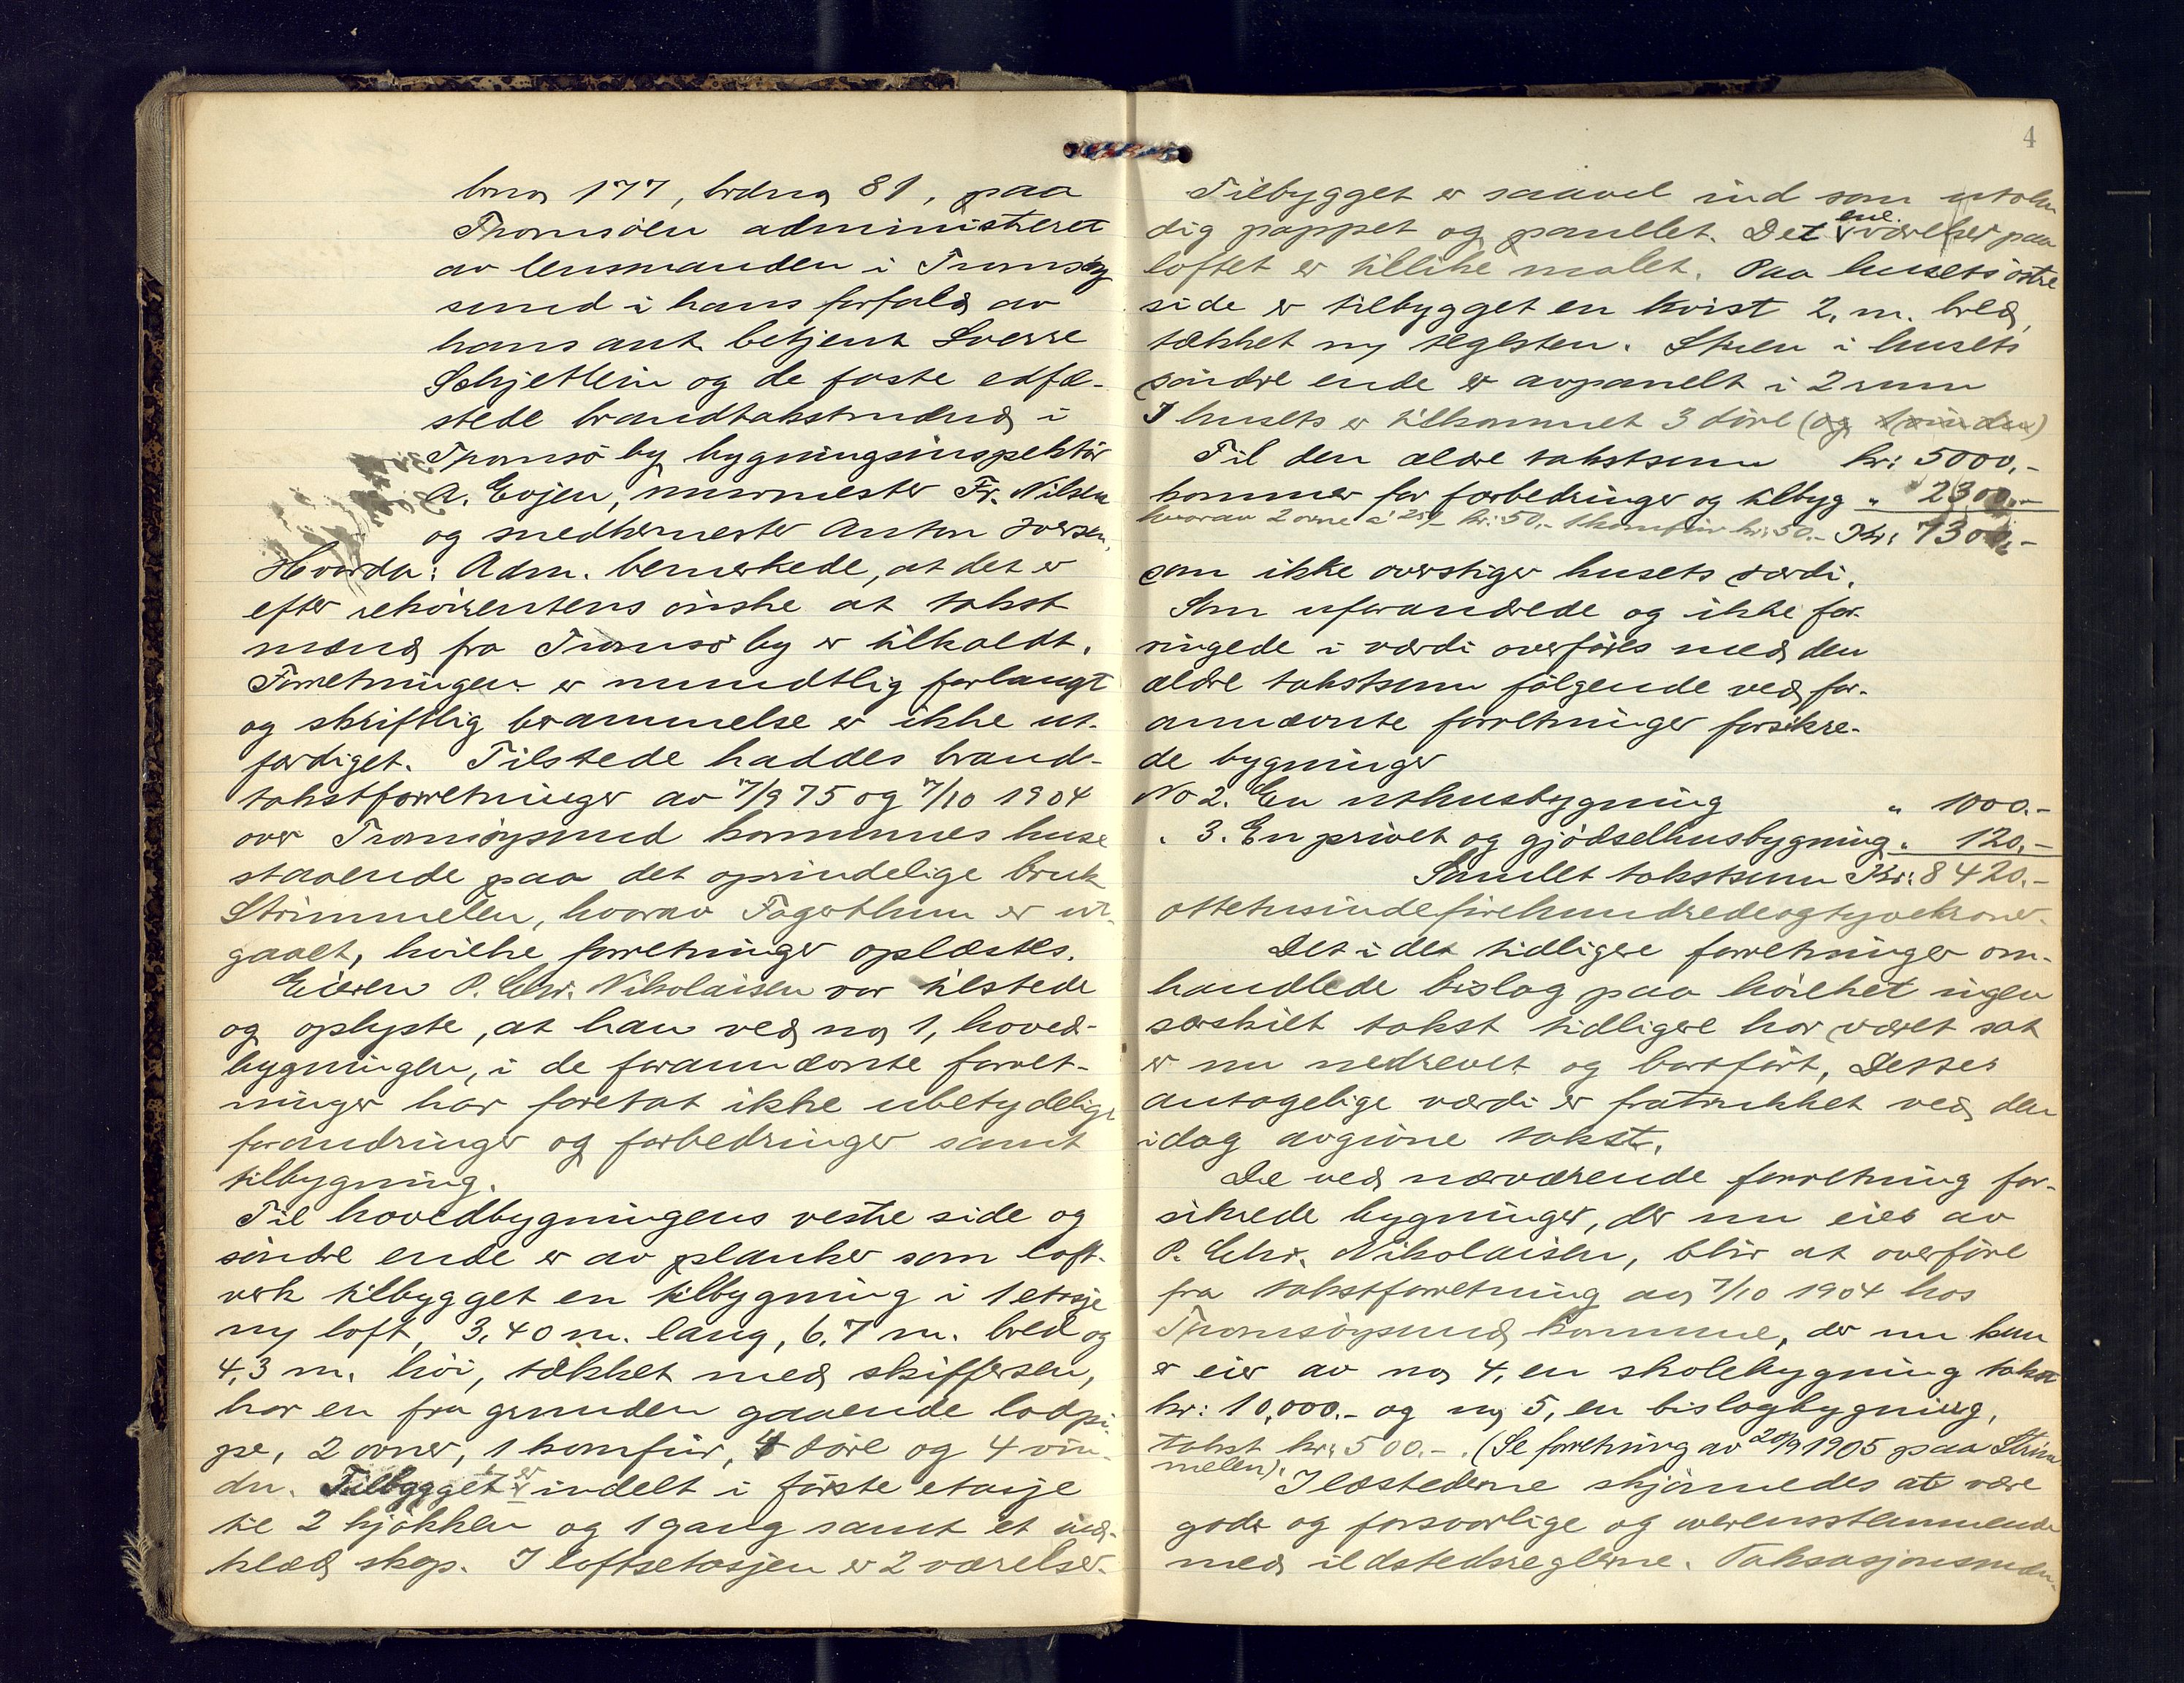 brnr 177, brdnr 81, paa
Tromsöen administreret
av lensmanden i Tromsöy
sund i hans forfald av
hans ant. betjent Sverre
Schjetlein og de faste edfæ-
stede brandtakstmænd i
Tromsö by bygningsinspektör
A. Evjen, murmester Fr. Nilsen
og snedkermester Anton Iversen.
Hvorda: Adm. bemerkede, at det er
efter rekvirentens önske at takst
mænd fra Tromsö by er tilkaldt.
Forretningen er mundtlig forlangt
og skriftlig berammelse er ikke ut-
færdiget. Tilstede haddes brand-
takstforretninger av 7/9 75 og 7/10 1904
over Tromsöysund kommunes huse
staaende paa det oprindelige bruk
Strimmelen, hvorav Fagerthun er ut-
gaaet, hvilke forretninger oplæstes.
Eieren P. Chr. Nikolaisen var tilstede
og oplyste, at han ved no 1, hoved-
bygningen, i de forannævnte forret-
ninger har foretat ikke ubetydelige
forandringer og forbedringer samt
tilbygning.
Til hovedbygningens vestre side og
söndre ende er av planker som loft-
verk tilbygget en tilbygning i 1 etasje
og loft, 3,40 m. lang, 6,7 m. bred og
4,3 m. höi, tækket med skiffersten,
har en fra grunden gaaende lodpi-
pe, 2 ovner, 1 komfür, 4 döre og 4 vin-
duer. Tilbygget er indelt i förste etasje
til 2 kjökken og 1 gang samt et ind-
klædt skap. I loftsetasjen er 2 værelser.
4
Tilbygget er saavel ind som utven
dig pappet og panellet. Det ene værelse paa
loftet er tillike malet. Paa husets östre
side er tilbygget en kvist 2. m. bred,
tækket m/ teglsten. Stuen i husets
söndre ende er avpanelt i 2 rum
I husets er tilkommet 3 döre (og 1 vindu)
Til den ældre takstsum kr: 5000,-
kommer for forbedringer og tilbyg " 2300,-
hvorav 2 ovne à 25,- kr: 50.- 1 komfür kr: 50.- Kr: 7300,-
som ikke overstiger husets værdi.
Som uforandrede og ikke for-
ringede i værdi overföres med den
ældre takstsum fölgende ved for-
annævnte forretninger forsikre-
de bygninger
No 2. En uthusbygning " 1000.-
" 3. En privet og gjödselhusbygning " 120.-
Samlet takstsum Kr: 8420.-
ottetusindefirehundredeogtyvekroner.
Det i det tidligere forretninger om-
handlede bislag paa hvilket ingen
særskilt takst tidligere har været sat
er nu nedrevet og bortfört, Dettes
antagelige værdi er fratrukket ved den
idag avgivne takst.
De ved nærværende forretning for-
sikrede bygninger, der nu eies av
P. Chr. Nikolaisen, blir at overföre
fra takstforretning av 7/10 1904 hos
Tromsöysund kommune, der nu kun
er eier av no 4, en skolebygning takst
kr: 10,000.- og no 5, en bislagbygning,
takst kr: 500.-. (Se forretning av 20/9 1905 paa Strim
melen).
Ildstederne skjönnedes at være
gode og forsvarlige og overensstemmende
med ildstedsreglerne. Taksasjonsmæn-